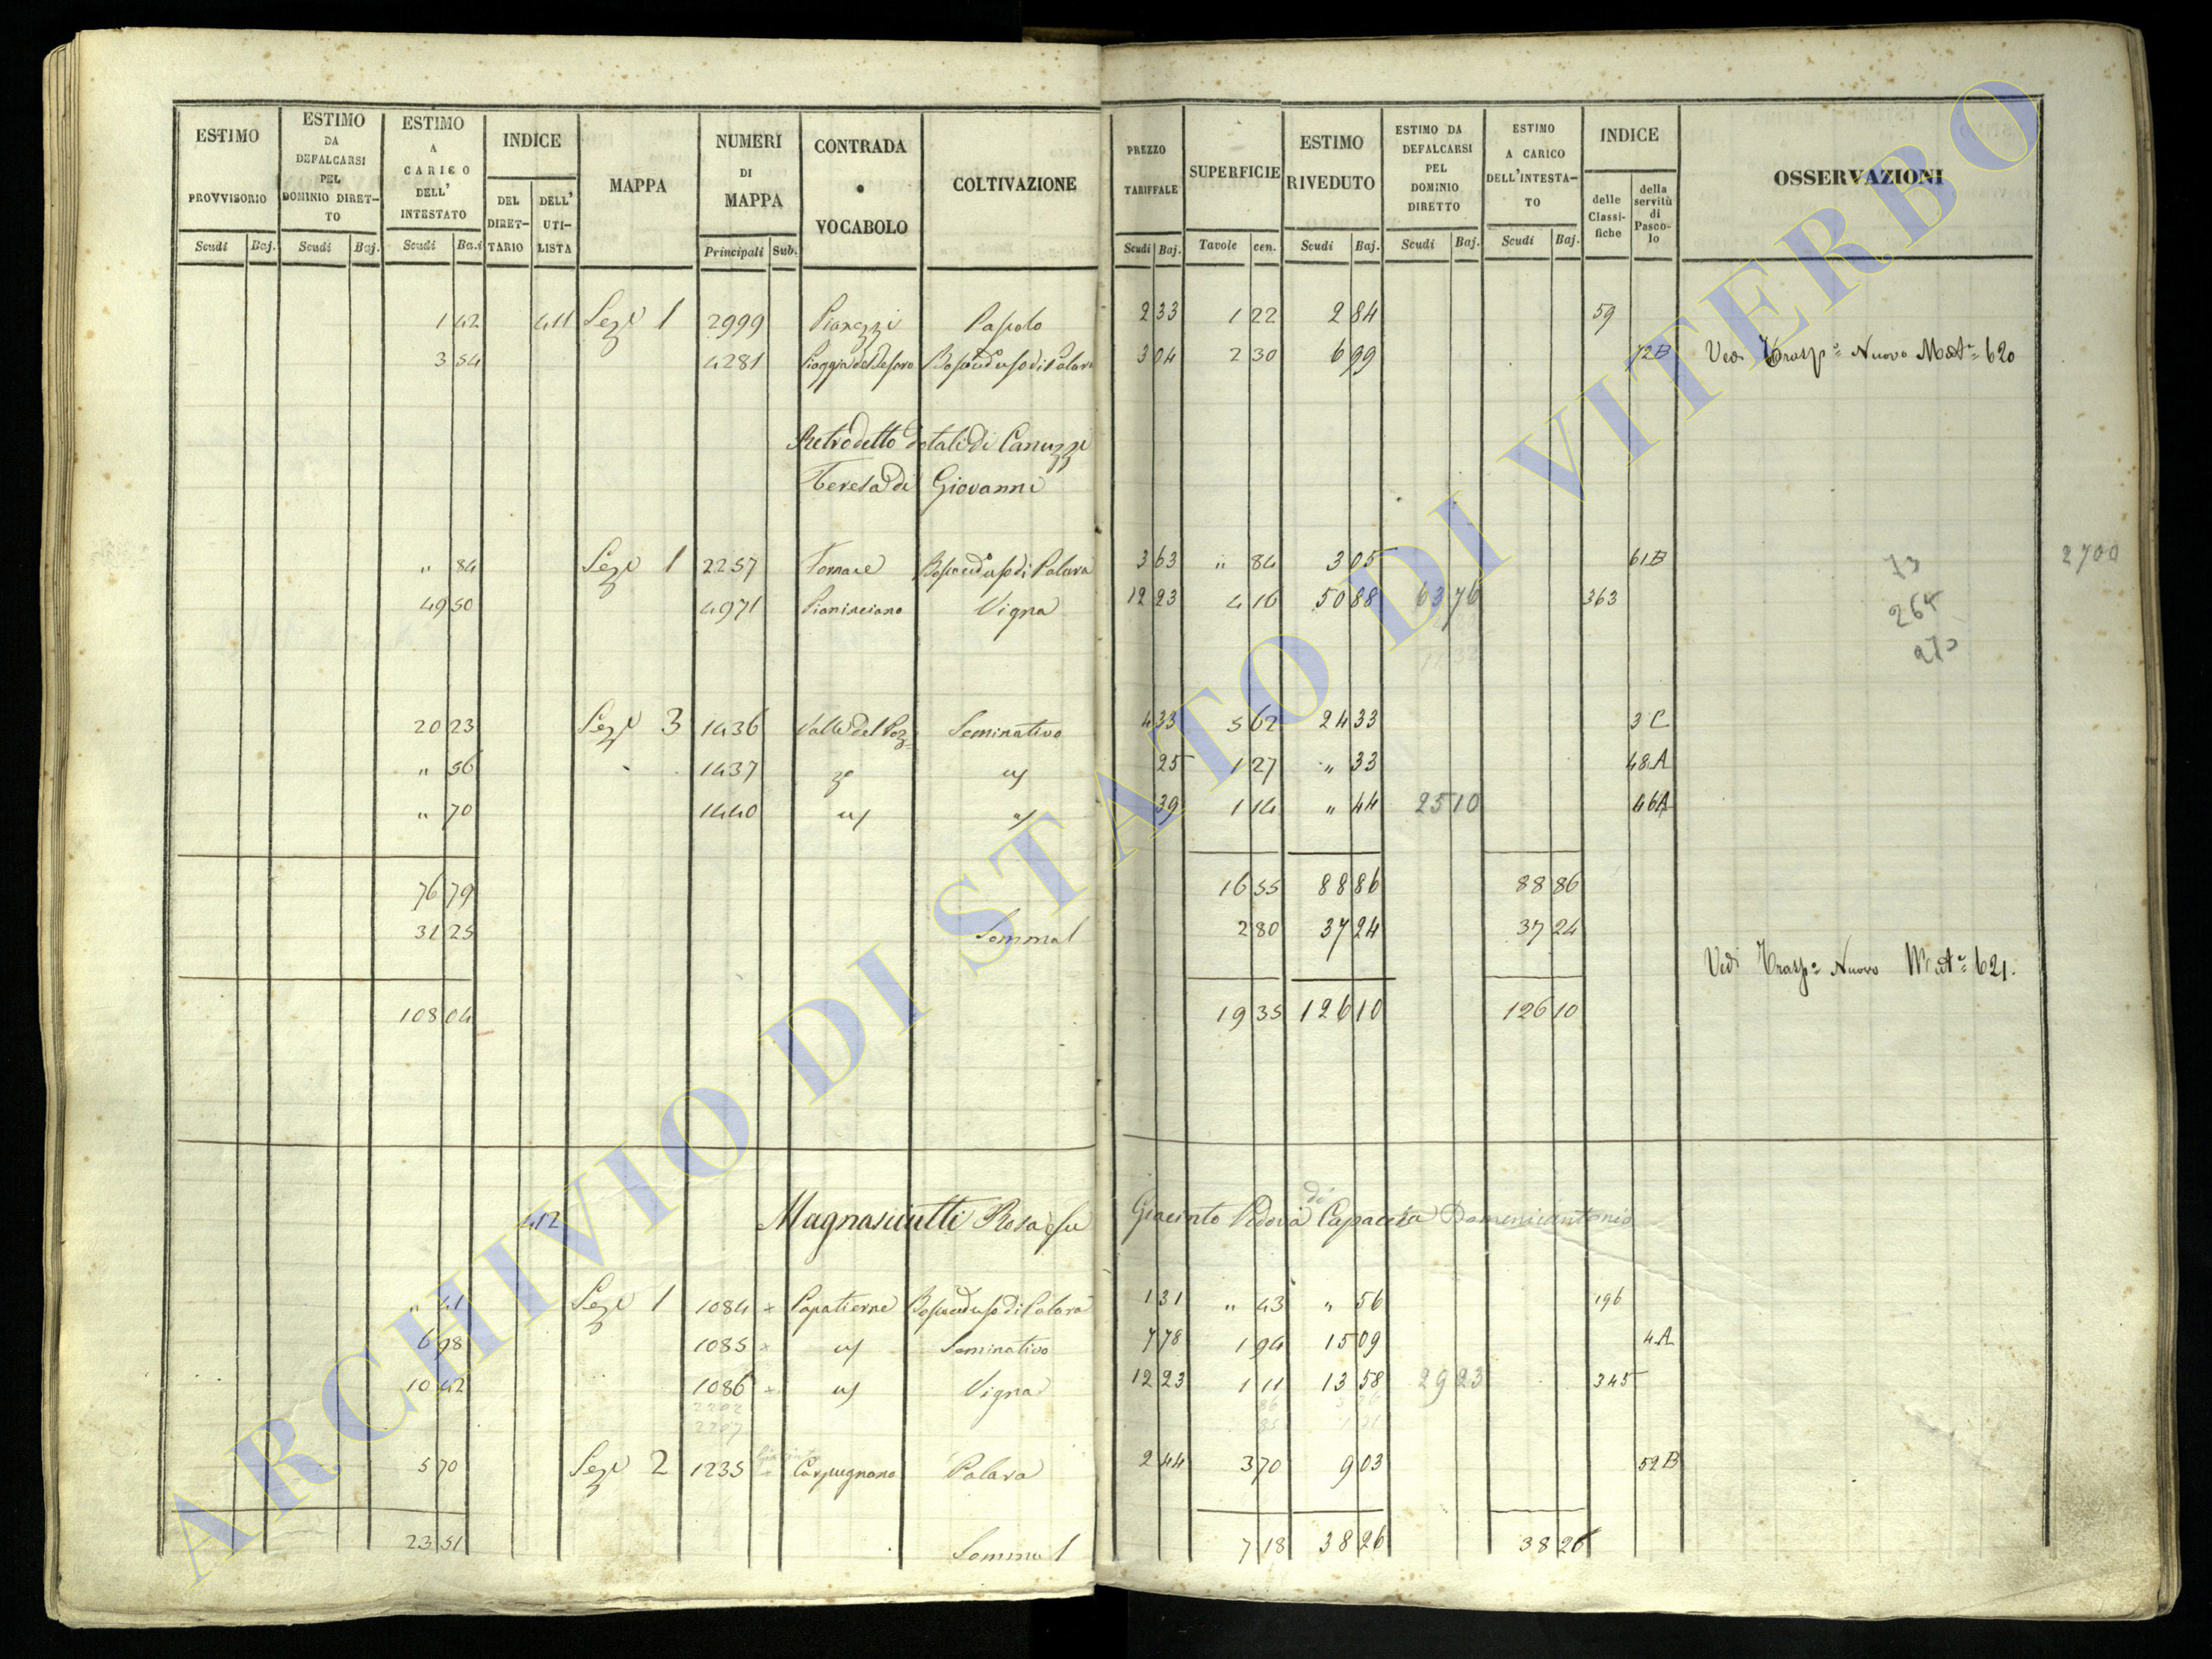 ESTIMO PROVVISORIO Scudi Baj.
ESTIMO DA DEFALCARSI PEL DOMINIO DIRETTO Scudi Baj.
ESTIMO A CARICO DELL' INTESTATO Scudi Baj.
INDICE DEL DIRETTARIO DELL' UTILISTA
MAPPA
NUMERI DI MAPPA Principali Sub.
CONTRADA o VOCABOLO
COLTIVAZIONE
PREZZO TARIFFALE Scudi Baj.
SUPERFICIE Tavole cen.
ESTIMO RIVEDUTO Scudi Baj.
ESTIMO DA DEFALCARSI PEL DOMINIO DIRETTO Scudi Baj.
ESTIMO A CARICO DELL'INTESTATO Scudi Baj.
INDICE delle Classifiche della servitù di Pascolo
OSSERVAZIONI
1 42 411 Sez.e 1 2999 Pianezzi Pascolo 2 33 1 22 2 84 59
3 54 4281 3 04 2 30 6 99 72B Vedi Trasp.o Nuovo Mat.e 620
Retrodetto dotali di Canuzzi
Teresa di Giovanni
" 84 Sez.e 1 2257 Fornace 3 63 " 84 3 05 61B 73 2700
49 50 4971 Pianisciano Vigna 12 23 4 16 50 88 63 76 363 264
20 23 Sez.e 3 1436 Valle del Poz- Seminativo 4 33 5 62 24 33 3C
" 56 1437 zo " 25 1 27 " 33 48A
" 70 1440 39 1 14 " 44 25 10 46A
76 79 16 55 88 86 88 86
31 25 Somma 1 2 80 37 24 37 24
Vedi Trasp.o Nuovo Mat.e 621.
108 04 19 35 126 10 126 10
412 Magnasciutti Rosa fu Giacinto Vedova di Capaccia Domenicantonio
" 41 Sez.e 1 1084 x Papatierne Bosco ced.o uso di Palara 1 31 " 43 " 56 196
6 98 1085 x Seminativo 7 78 1 94 15 09 4A
10 42 1086 x Vigna 12 23 1 11 13 58 29 23 345
5 70 Sez.e 2 1235 Carpugnano Palara 2 44 3 70 9 03 52B
23 51 Somma 1 7 18 38 26 38 26
ARCHIVIO DI STATO DI VITERBO